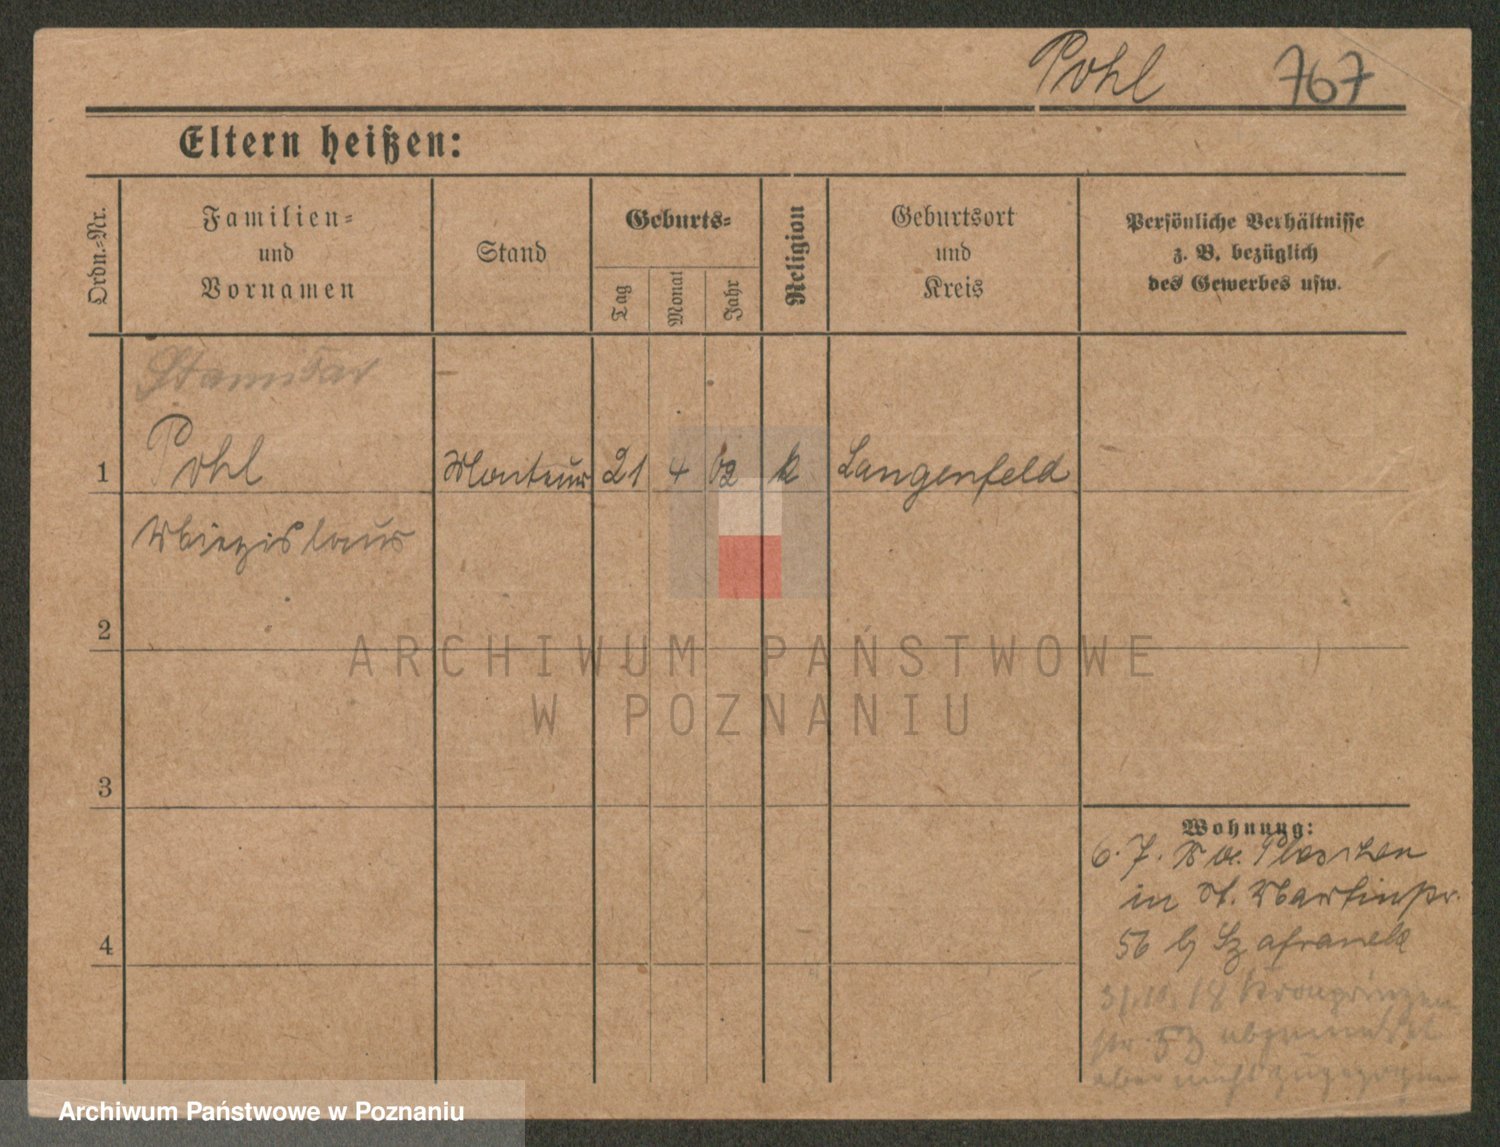 Pohl 767
Eltern heißen:
Ordn.-Nr.
Familien-
und
Vornamen
Stand
Geburts-
Tag
Monat
Jahr
Religion
Geburtsort
und
Kreis
Persönliche Verhältnisse
z. B. bezüglich
des Gewerbes usw.
1 Pohl Monteur 21 4 k Langenfeld
2
3
4
Wohnung:
6. 7. Pleschen
in St. Martinstr.
56 b/ Szafranek
31.10.18 Kronprinzen
str. abgemeldet
aber nicht zugezogen
ARCHIWUM PAŃSTWOWE
W POZNANIU
Archiwum Państwowe w Poznaniu